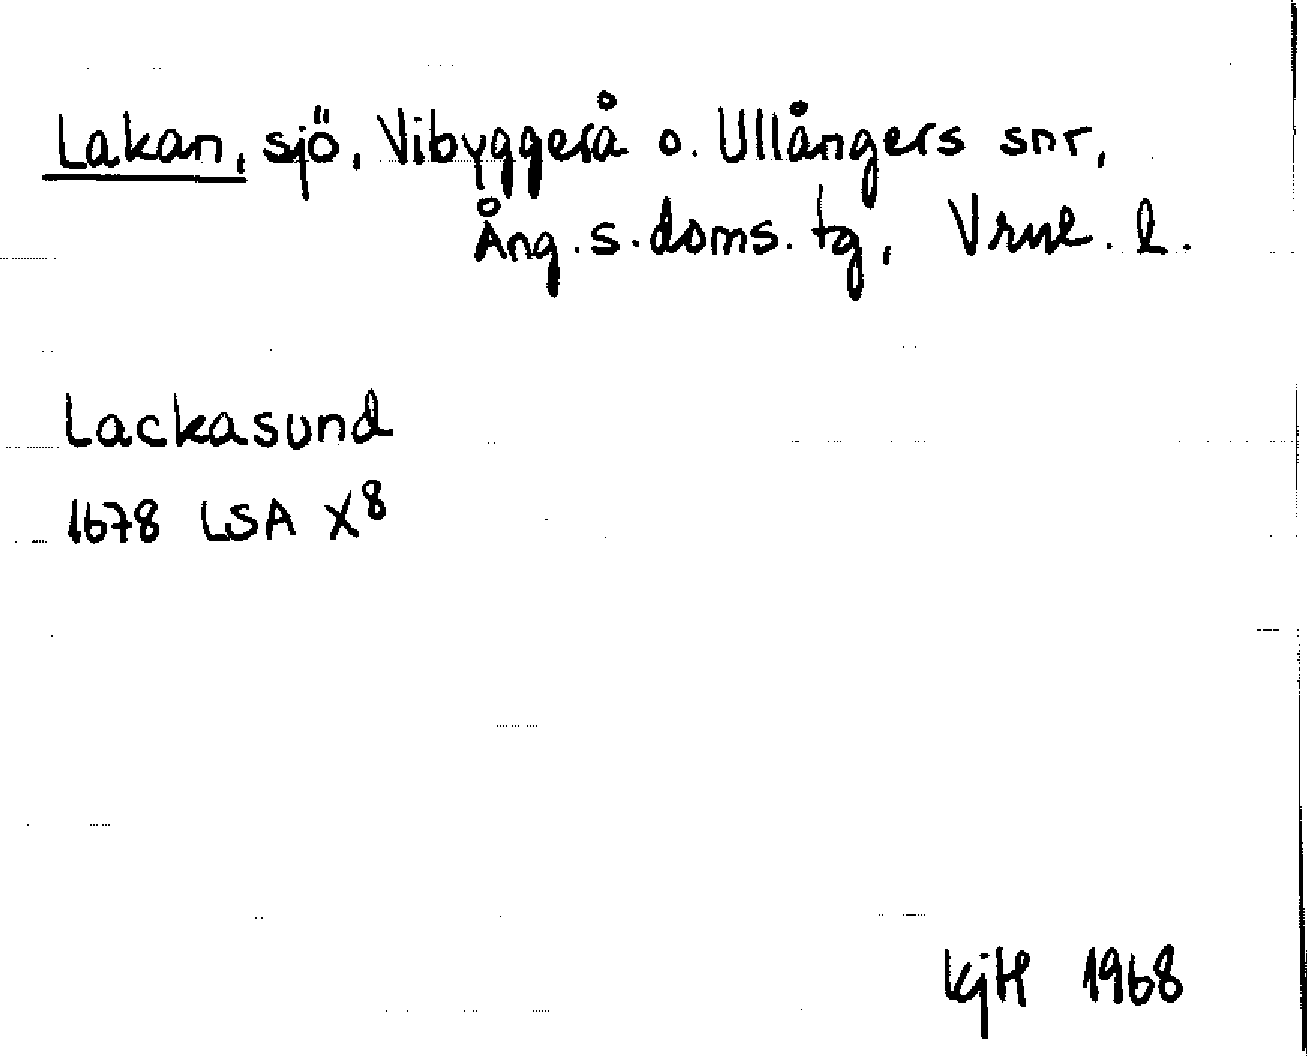 Lakan, sjö, Vibyggerå o. Ullångers snr,
Ång. s. doms. tg, Vrnl. l.
Lackasund
1678 LSA X8
KjH 1968